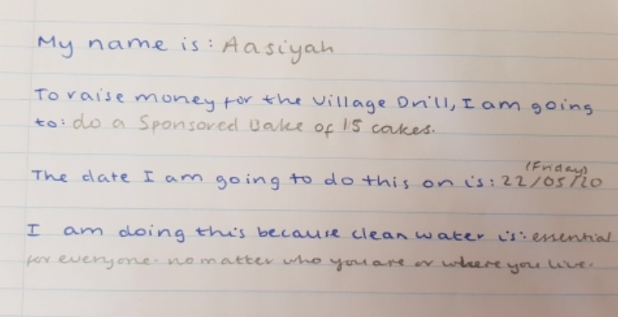 My name is: Aasiyah
To raise money for the Village Drill, I am going
to: do a Sponsored Bake of 15 cakes.
(Friday)
The date I am going to do this on is: 22/05/20
I am doing this because clean water is: essential
for everyone. no matter who you are or where you live.